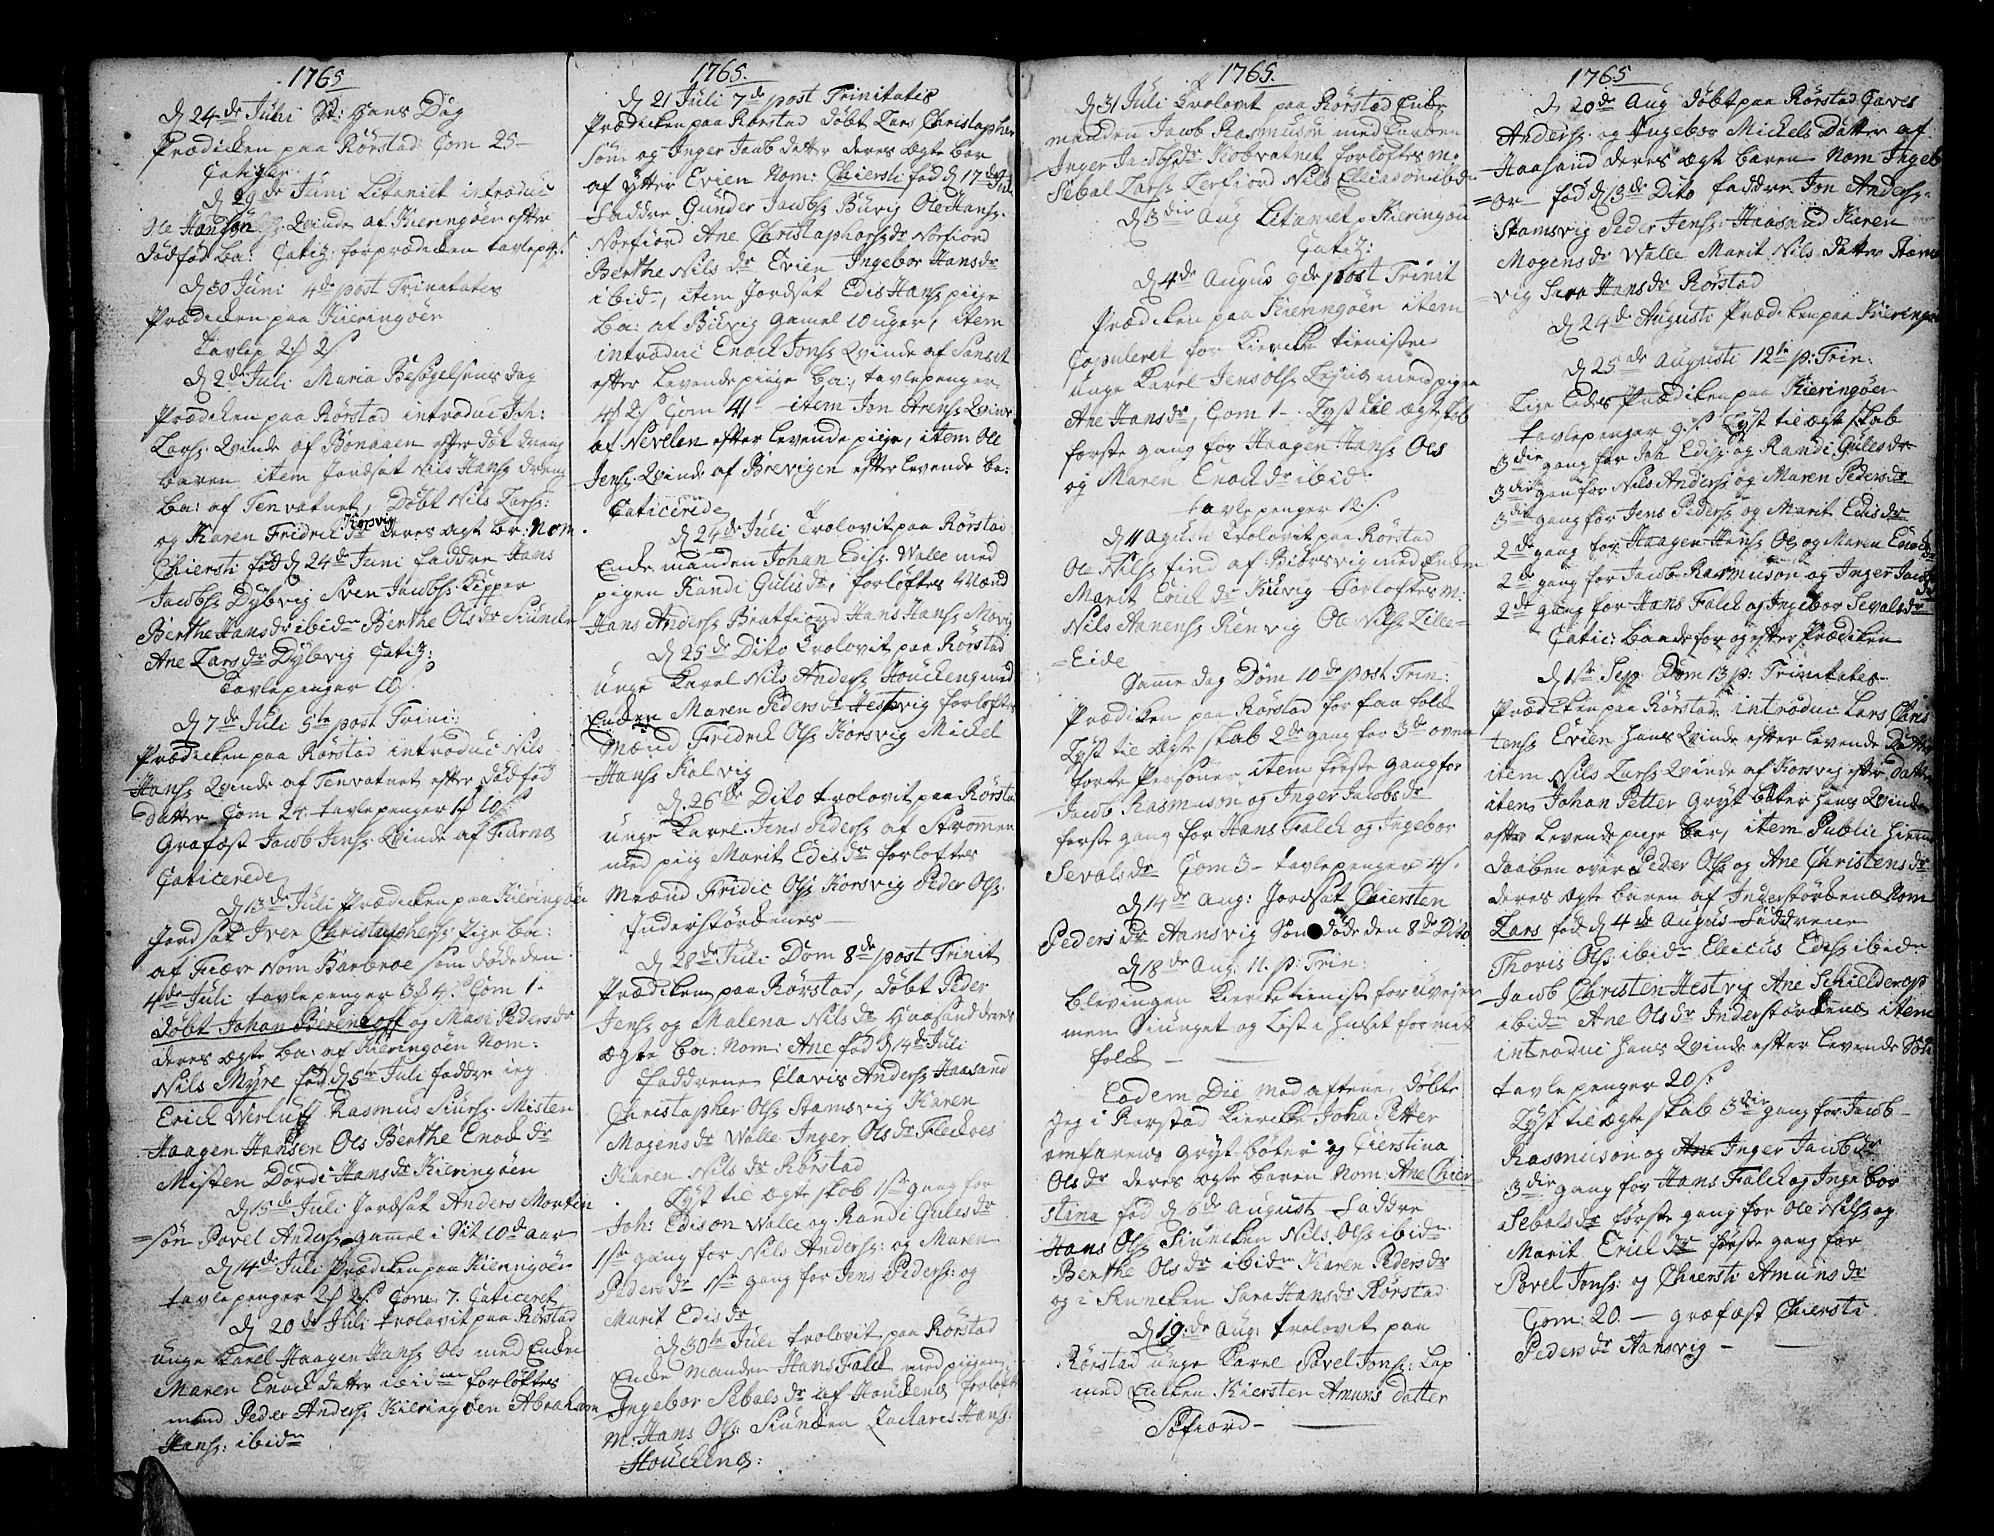 1765
D 24de Juni St: Hans Dag
Prædicken paa Rörstad Com 25 -
Catiz:
D 29de Juni Litaniet introduc
Ole Hansön Qvinde af Kieringöen efter
dödfød ba: Catiz: for prædicken tavlep
D 30 Juni 4de post Trinitates
Prædicken paa Kieringöen
Tavlep
D 2de Juli Maria Besøgelsens dag
Prædicken paa Rörstad introduc Joh:
Larsz: Qvinde af Bonaaen efter Död dreng
baren item Jordsat Nils Hansz dreng
ba: af Tenvatnet, Döbt Nils Larsz:
og Karen Fridrichsdr Korsvig deres ægt br: Nom
Chiersti fød D 24de Juni faddre Hans
Jacobsz Dybvig Sven Jacobsz Kipper
Berthe Hansdr ibidn Berthe Olsdr Siunden
Ane Larsdr Dybvig Catiz:
Tavlepenger 10
D 7de Juli 5te post Trini:
Prædicken paa Rörstad introduc Nils
Hansz Qvinde af Tenvatnet efter Dödfød
datter Com 24 tavlepenger
Grafæst Jacob Jensz Qvinde af
Caticerede
D 13de Juli Prædicken paa Kieringöen
Jordsat Iven Christophersz: Pige ba:
af Nom Barbroe som døde den
4de Juli tavlepenger Com 1 -
Döbt Johan Berenhoff og Mari Pedersdr
deres ægte ba: af Kieringöen Nom:
Nils Myre fød D 5te Juli faddre ieg
Erick Rasmus Siursz: Misten
Haagen Hansen Ols Berthe Enockdr
Misten Dordi Hansdr Kieringöen
D 15de Juli Jordsat Anders Morten
=sön Povel Andersz gamel i Sit 10de aar
D 14de Juli Prædicken paa Kieringöen
tavlepenger Com: 7. Caticeret
D 20de Juli trolovit paa Rörstad
unge Karel Haagen Hansz Ols med Enke
Maren Enock datter ibidm forlöftes
mænd Peder Andersz Kieringöen Abraham
Hansz: ibidm
1765.
D 21 Juli 7de post Trinitatis
Prædicken paa Rörstad Döbt Lars Christopher
sön og Inger Jacob datter deres Ægte bar
af Ytter Evien Nom: Chiersti fød D 17de Juli
Faddre Gunder Jacobsz Buvig Ole Hansz:
Norfiord Ane Christophersdr Norfiord
Berthe Nilsdr Evien Ingebor Hansdr
ibidn, item Jordsat Edis Hansz piige
ba: af Buvig gamel 10 uger, item
introduc Enock Jonsz Qvinde af
efter Levende piige ba:, tavlepenger
Com 41 - item Jon Qvinde
af Nevelen efter levende piige, item Ole
Jensz: Qvinde af Brevigen efter levende ba:
Caticerede
D 24de Juli trolovit paa Rörstad
Enke manden Johan Edisz Walle med
pigen Randi Gulisdr, forlöftes Mænd
Hans Andersz Bratfiord Hans Hansz Movig
D 25de Dito trolovit paa Rörstad
unge Karel Nils Andersz Houckeng med
Enken Maren Pedersdr Hestvig forlöftes
Mænd Fridrick Olsz Korsvig Mickel
Hansz Kalvig
D: 26de Dito trolovit paa Rörstad
unge Karel Jens Pedersz af Strömen
med piig Marit Edisdr forlöftes
Mænd Fridric Olsz Korsvig Peder Olsz
Inderstörckenes -
D 28de Juli Dom 8de post Trinit
Prædicken paa Rörstad, Döbt Peder
Jensz og Malena Nilsdr Haasand deres
ægte ba: Nom: Ane fød D 14de Juli
Faddrene Clavis Andersz Haasand
Christopher Olsz Stamsvig Karen
Mogensdr Walle Inger Olsdr Fleckoes
Karen Nilsdr Rörstad
Lyst til ægte skab 1ste gang for
Joh: Edison Walle og Randi Gulisdr
1ste gang for Nils Andersz: og Maren
Pedersdr 1ste gang for Jens Pedersz: og
Marit Edisdr
D 30te Juli trolovit paa Rörstad
Enke manden Hans Falck med piigen
Ingebor Sebalsdr af Houckenes forlöft
M: Hans Olsz: Siuncken Zachares Hansz:
Houckenes:
1765.
D 31 Juli trolovit paa Rörstad Enke
manden Jacob Rasmuson med Enken
Inger Jacobsdr Kobvatnet forloftes M:
Sebal Larsz Lerfiord Nils Elliason ibidn
D 3die Aug Litaniet Kieringöen
Catiz:
D 4de Augus 9de post Trinit
Prædicken paa Kieringöen item
Copuleret for Kiercke tienisten
unge Karel Jens Olsz med pigen
Ane Hansdr, Com 1 - Lyst til ægteskab
første gang for Haagen Hansz Ols
og Maren Enockdr ibid:
tavlepenger 12
D 11 Agusti trolovit paa Rörstad
Ole Nilsz find af Biörsvig med Enken
Marit Erickdr Kuvig forloftes M:
Nils Renvig Ole Nilsz Lille=
=Eide
Samme dag Dom 10de post Trin:
Prædicken paa Rörstad for faa folck
Lyst til ægte skab 2de gang for 3de ovna
förte Personer item første gang for
Jacob Rasmuson og Inger Jacobsdr
første gang for Hans Falck og Ingebor
Sevalsdr Com 3 - tavlepenger 4
D 14de Aug: Jordsat Chiersten
Pedersdr Hansvig Som döde den 8de Dito
D 18de Aug: 11. p: Trin:
Blev ingen Kiercketieniste for uvejer
men Siunget og Læst i huset for mit
folck - -
Eodem Die mod aftene, døbte
jeg i Rorstad Kiercke Joha Petter
omfarens Gryt-böter og Cierstina
Olsdr deres ægte baren Nom: Ane Chier
stina fød D 6de August Faddre
Hans Olsz Siuncken Nils Olsz ibidn
Berthe Olsdr ibidn Karen Pedersdr
og i Siuncken Sara Hansdr Rörstad
D 19:de Aug: trolovit paa
Rörstad unge Karel Povel Jonsz: Lap
med Enken Kiersten Amuns datter
Sefiord -
1765
D 20de Aug döbt paa Rörstad Claves
Andersz og Ingebor Mickels datter af
Haasand deres ægt baren Nom Ingeb
=or - fød D 13de Dito faddre Jon Andersz=
Stamsvig Peder Jensz: Haasand Karen
Mogensdr Walle Marit Nils datter Stams
vig Sira Hansdr Rörstad
D 24de Augusti Prædicken paa Kieringöen
D 25de Augusti 12te p: Trin:
Lige ledes Prædicken paa Kieringöen
tavlepenger 9 Lyst til ægte skab
3die gang for Joh Edisz: og Randi Gulesdr
3die gan for Nils Andersz og Maren Pedersdr
3die gang for Jens Pedersz og Marit Edisdr
2de gang for Haagen Hansz Ols og Maren Enockdr
2de gang for Jacob Rasmuson og Inger Jacobsdr
2de gang for Hans Falck og Ingebor Sevalsdr
Catic: baade for og efter Prædicken
D 1ste Sep Dom 13 p: Trinitates
Prædicken paa Rörstad introduc Lars Chris
tensz Evien hans Qvinde efter levende Datter
item Nils Larsz Qvinde af Korsvig efter datter
item Johan Petter Gryt böter hans Qvinde
efter levende pige bar, item Public hiemme
daaben over Peder Olsz og Ane Christensdr
deres ægte baren af Inderstörckenes Nom
Lars fød D 4de Augus Faddrene
Thoris Olsz ibidn Ellicus Edisz ibidn
Jacob Christen Hestvig Ane Schielderop
ibidn Ane Olsdr Inderstörckenes item
introduc hans Qvinde efter Levende Sön
tavle penger 20
Lyst til ægte skab 3die gang for Jacob
Rasmuson og Ane Inger Jacobdr
3die gang for Hans Falck og Ingebor
Sebalsdr første gang for Ole Nilsz og
Marit Erickdr første gang for
Povel Jonsz: og Chiersti Amunsdr
Com: 20. - græfæst Chiersti
Pedersdr Hansvig -